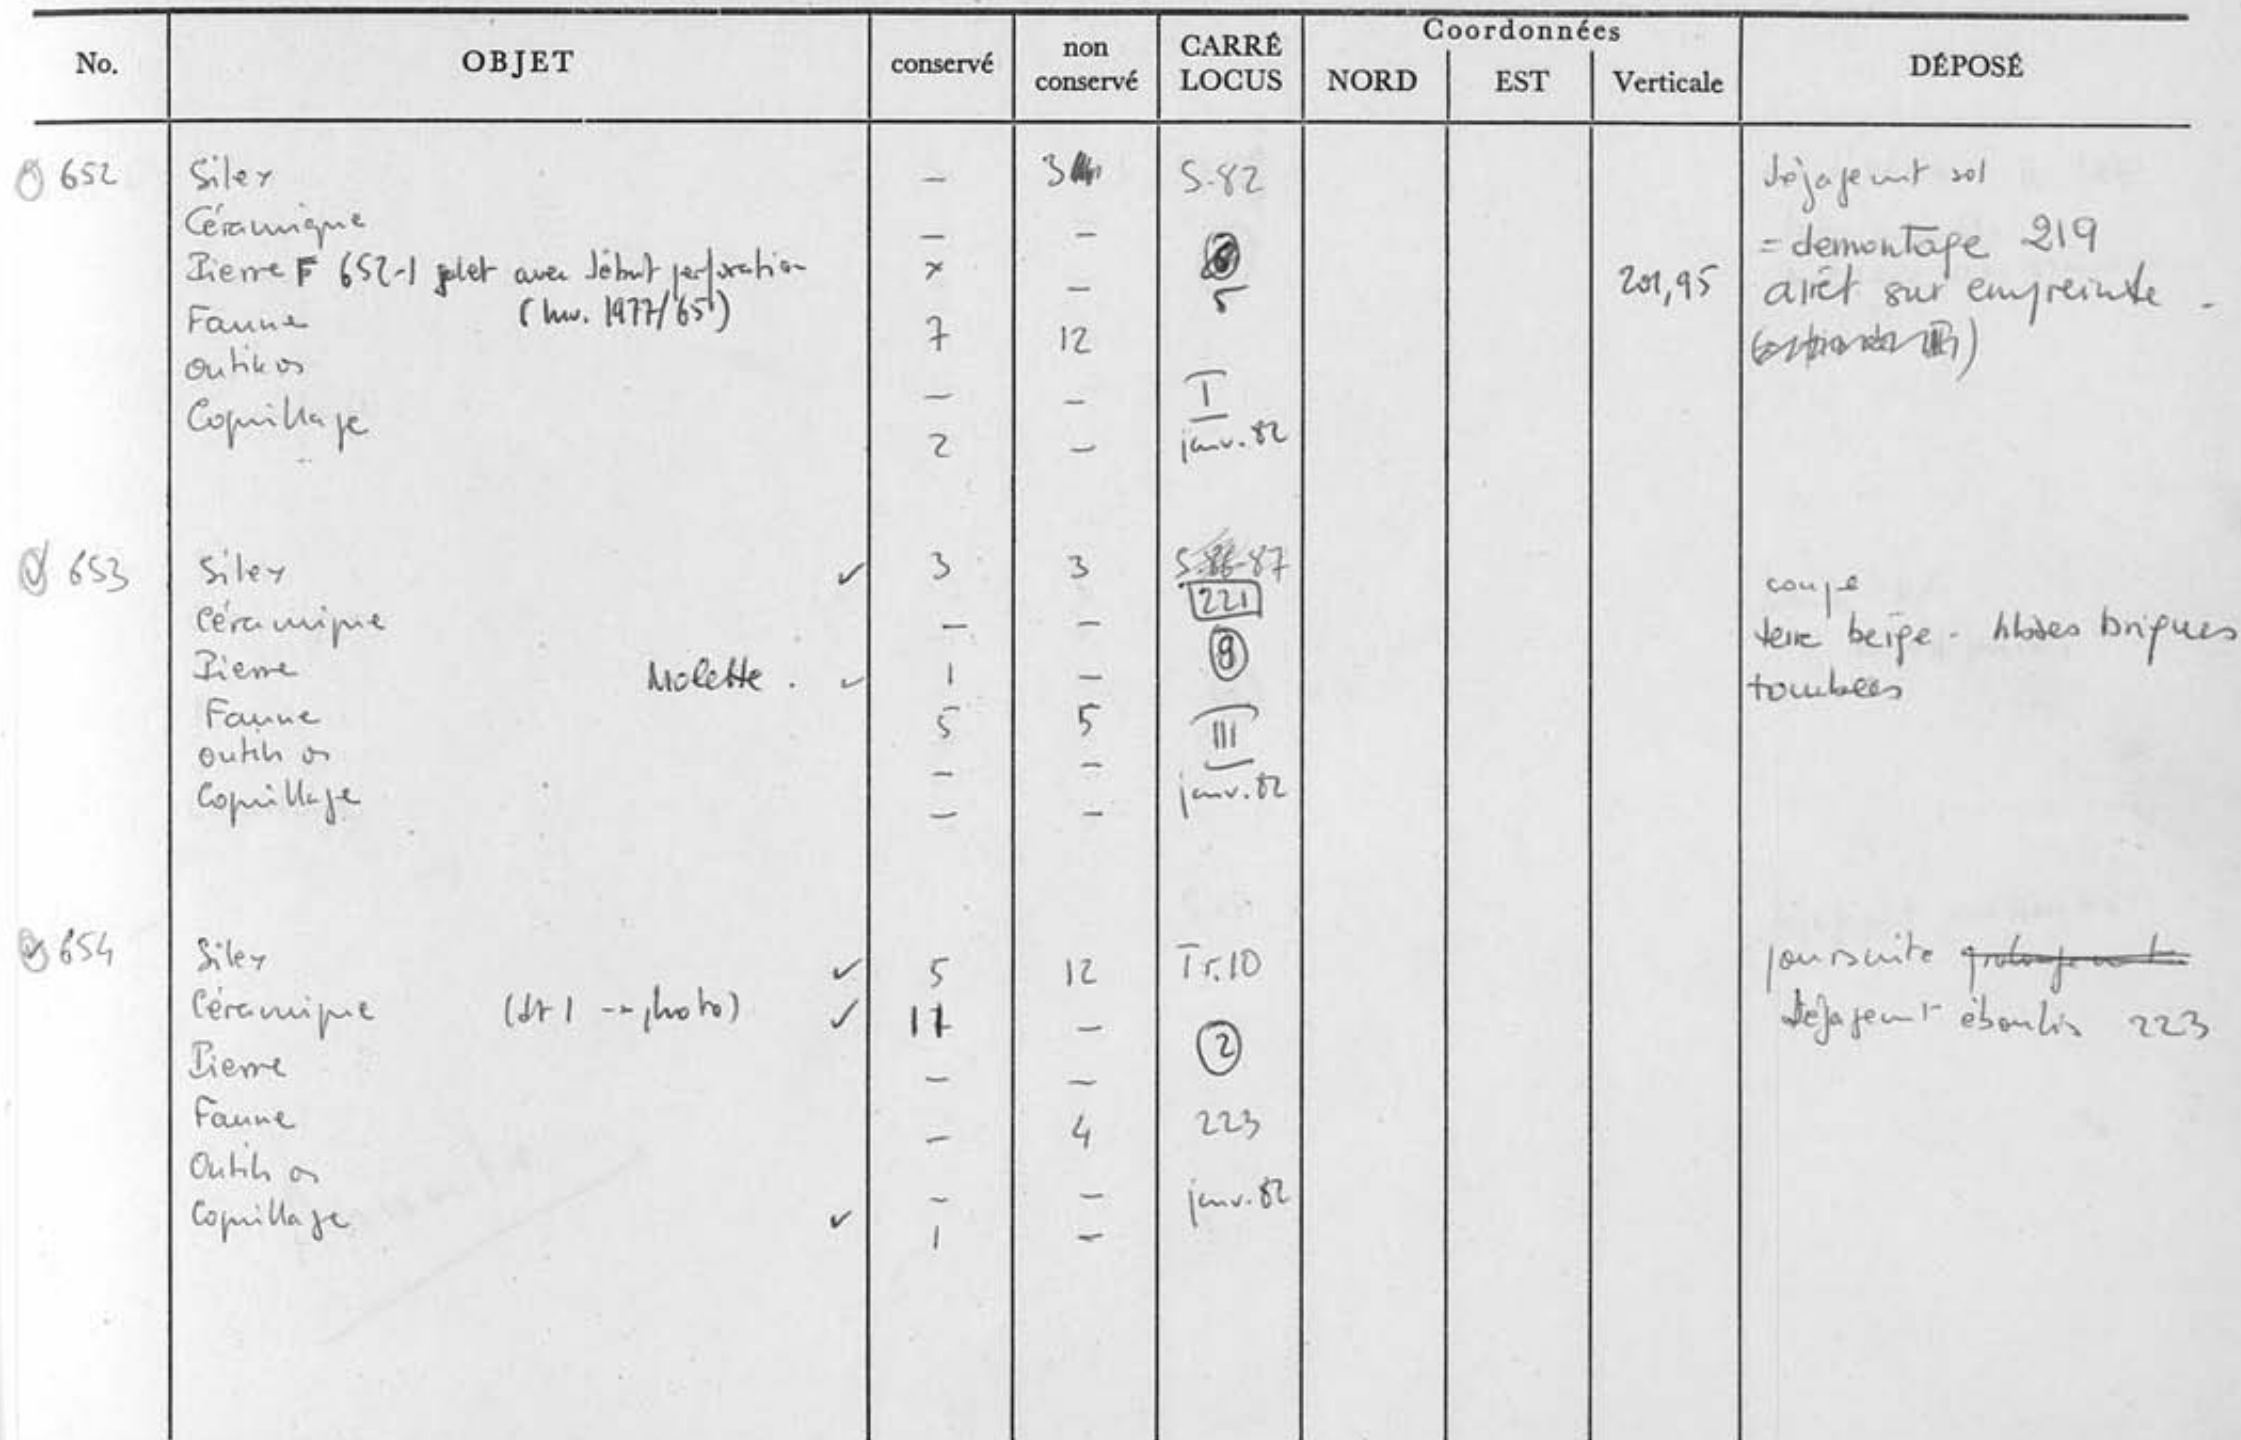 No. OBJET conservé non conservé CARRÉ LOCUS Coordonnées NORD EST Verticale DÉPOSÉ
652 Silex – 3 S.82 dégagement sol
Céramique – – = demontage 219
Pierre F 652-1 galet avec début perforation x – 5 201,95 arrêt sur empreinte -
(Inv. 1977/65)
Faune 7 12
Outils os – – I
Coquillage 2 – janv. 82
653 Silex ✓ 3 3 S. 87 coupe
Céramique – – 221 terre beige - briques
Pierre Molette . ✓ 1 – 8 tombées
Faune 5 5 III
outils os – –
Coquillage – – janv. 82
654 Silex ✓ 5 12 Tr.10 poursuite
Céramique (dt 1 -- photo) ✓ 17 – 2 dégagement éboulis 223
Pierre – –
Faune – 4 223
Outils os – – janv. 82
Coquillage ✓ 1 –